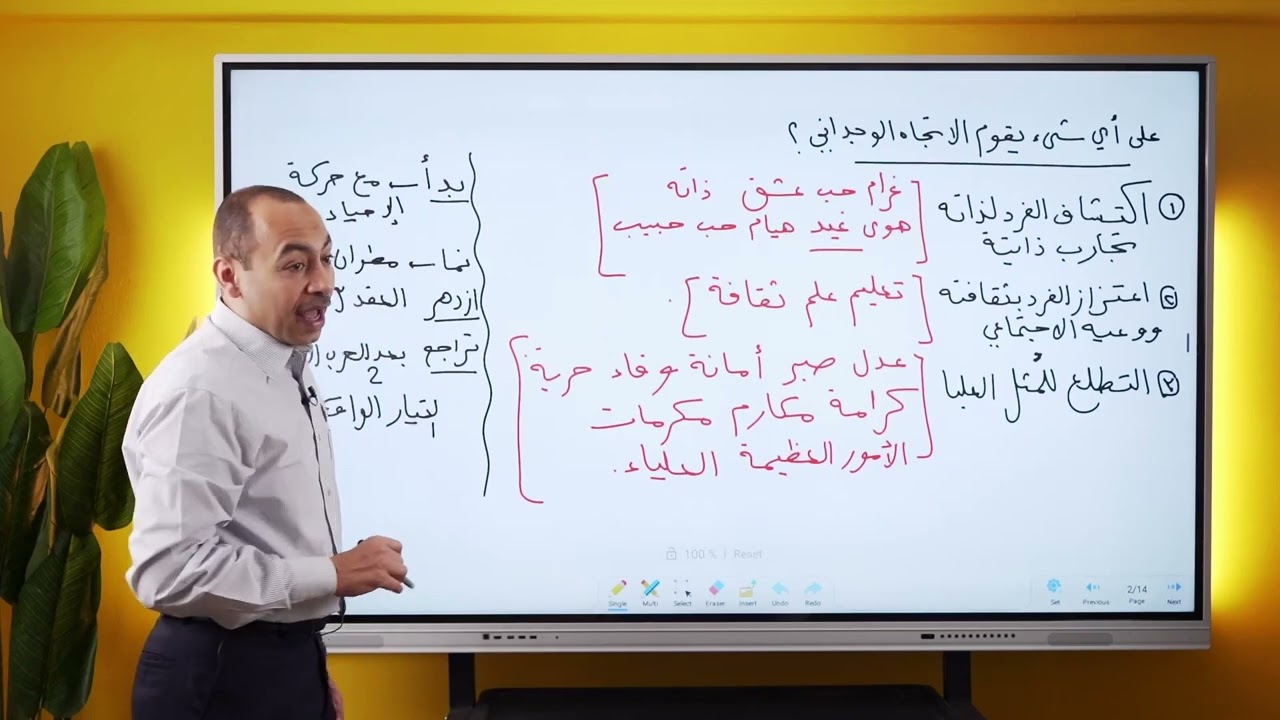 على أي شيء يقوم الاتجاه الوجداني ؟
① اكتشاف الفرد لذاته
تجارب ذاتية
غرام حب عشق ذاته
هوى غيد هيام حب حبيب
② اعتزاز الفرد بثقافته
ووعيه الاجتماعي
تعليم علم ثقافة
③ التطلع للمُثل العليا
عدل صبر أمانة وفاء حرية
كرامة مكارم مكرمات
الأمور العظيمة العلياء.
بدأ مع حركة
الإحياء
مطران
ازدهر العقد
تراجع بعد الحرب
2
التيار
100 % | Reset
Single Multi Select Eraser Insert Undo Redo
Set Previous 2/14 Page Next